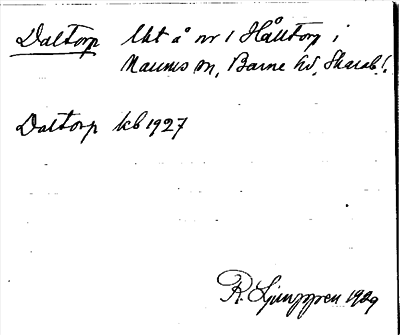 Daltorp lht å nr 1 Hålltorp i
Naums sn, Barne hd, Skarab. l.
Daltorp kb 1927
R. Ljunggren 1929